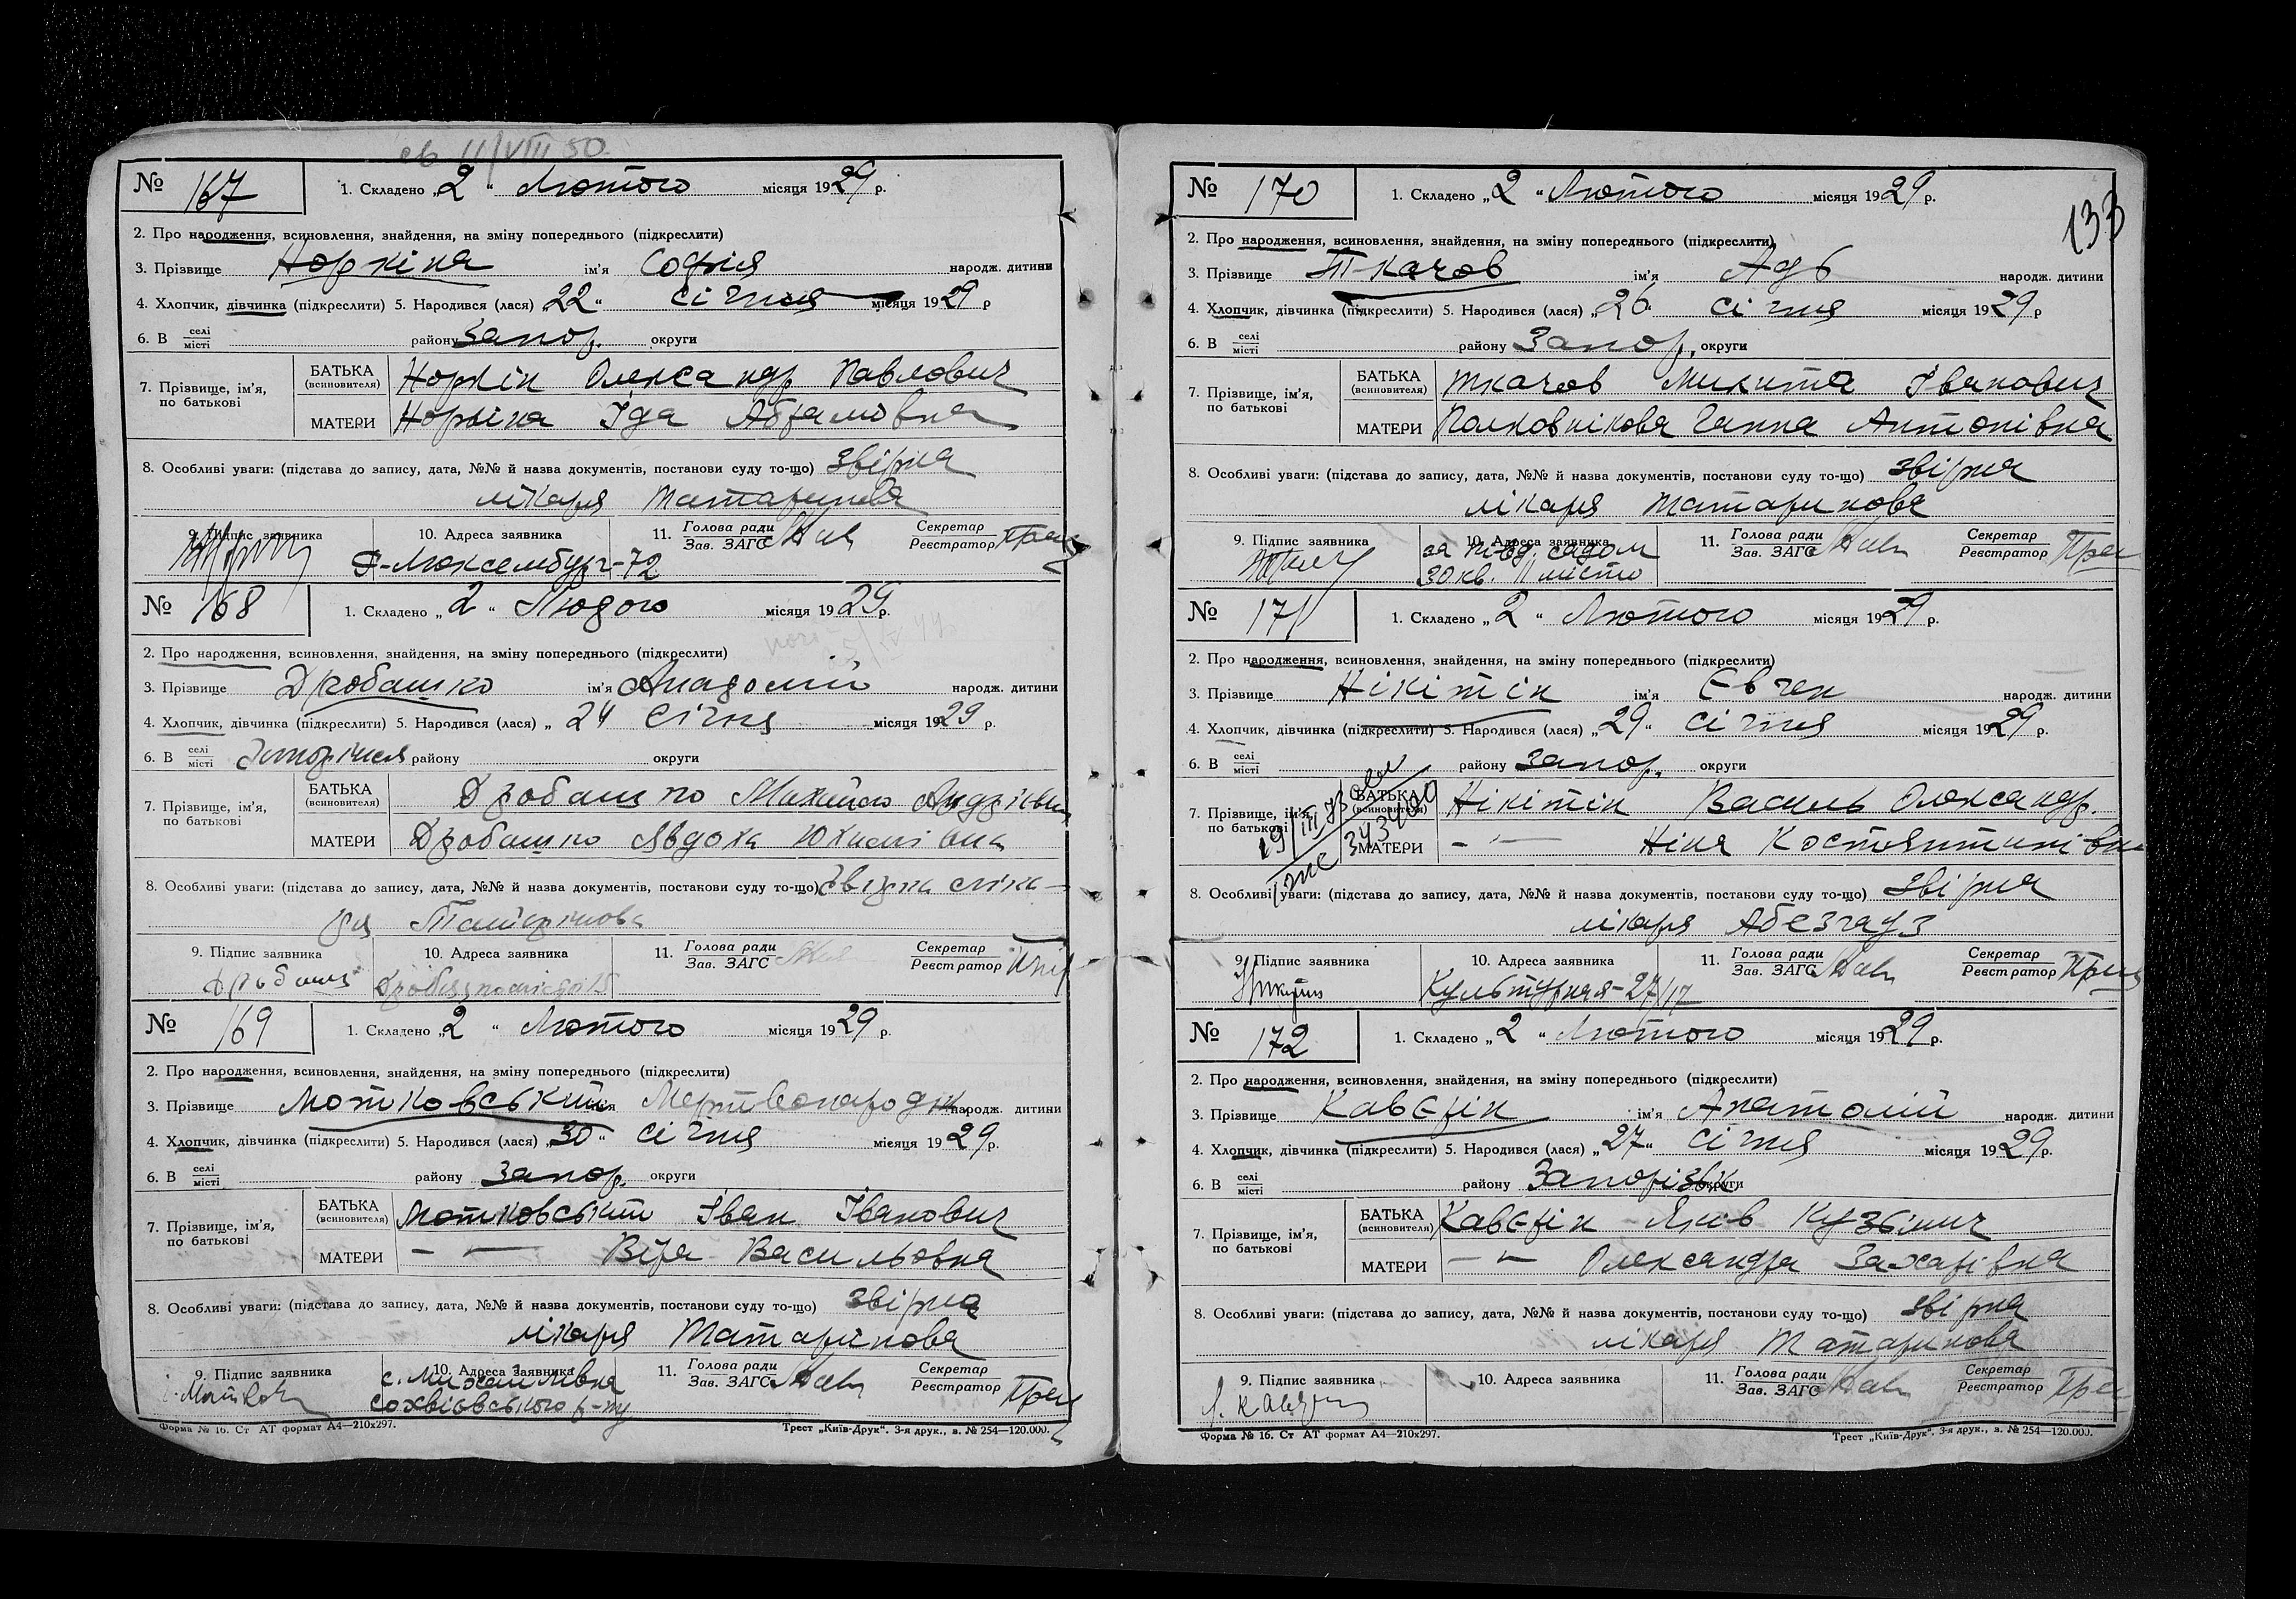 св 11/VIII 50
№ 167 1. Складено „2“ Лютого місяця 1929 р.
2. Про народження, всиновлення, знайдення, на зміну попереднього (підкреслити)
3. Прізвище Норкіна ім'я Софія народж. дитини
4. Хлопчик, дівчинка (підкреслити) 5. Народився (лася) „22“ січня місяця 1929 р
6. В селі місті району Запор. округи
7. Прізвище, ім'я, по батькові БАТЬКА (всиновителя) Норкін Олександр Павлович
МАТЕРИ Норкіна Іда Абрамовна
8. Особливі уваги: (підстава до запису, дата, №№ й назва документів, постанови суду то-що) Звірка
лікаря Татаринова
9. Підпис заявника 10. Адреса заявника 11. Голова ради Зав. ЗАГС Секретар Реєстратор
Р-Люксембург-72
№ 168 1. Складено „2“ Людого місяця 1929 р.
2. Про народження, всиновлення, знайдення, на зміну попереднього (підкреслити)
3. Прізвище Дробашко ім'я Анадолій народж. дитини
4. Хлопчик, дівчинка (підкреслити) 5. Народився (лася) „24 Січня місяця 1929 р.
6. В селі місті району округи
7. Прізвище, ім'я, по батькові БАТЬКА (всиновителя) Дробашко Михайло Андрієвич
МАТЕРИ Дробашко Явдоха Юхимівна
8. Особливі уваги: (підстава до запису, дата, №№ й назва документів, постанови суду то-що) Звірка ліка-
ря Татарінова
9. Підпис заявника 10. Адреса заявника 11. Голова ради Зав. ЗАГС Секретар Реєстратор
№ 169 1. Складено „2“ Лютого місяця 1929 р.
2. Про народження, всиновлення, знайдення, на зміну попереднього (підкреслити)
3. Прізвище Мотковський ім'я Мертвонародж. народж. дитини
4. Хлопчик, дівчинка (підкреслити) 5. Народився (лася) „30“ січня місяця 1929 р.
6. В селі місті району Запор. округи
7. Прізвище, ім'я, по батькові БАТЬКА (всиновителя) Мотковський Іван Іванович
МАТЕРИ - - Віра Васильовна
8. Особливі уваги: (підстава до запису, дата, №№ й назва документів, постанови суду то-що) Звірка
лікаря Татарінова
9. Підпис заявника 10. Адреса заявника 11. Голова ради Зав. ЗАГС Секретар Реєстратор
с. Михайлівка
р-ну
Форма № 16. Ст АТ формат А4—210х297. Трест „Київ-Друк“. 3-я друк., в. № 254—120.000.
133
№ 170 1. Складено „2“ Лютого місяця 1929 р.
2. Про народження, всиновлення, знайдення, на зміну попереднього (підкреслити)
3. Прізвище Ткачов ім'я народж. дитини
4. Хлопчик, дівчинка (підкреслити) 5. Народився (лася) „26“ січня місяця 1929 р
6. В селі місті району Запор. округи
7. Прізвище, ім'я, по батькові БАТЬКА (всиновителя) Ткачов Микита Іванович
МАТЕРИ Полковнікова Ганна Антонівна
8. Особливі уваги: (підстава до запису, дата, №№ й назва документів, постанови суду то-що) звірка
лікаря Татаринова
9. Підпис заявника 10. Адреса заявника 11. Голова ради Зав. ЗАГС Секретар Реєстратор
садом
30 кв. II місто
№ 171 1. Складено „2“ Лютого місяця 1929 р.
2. Про народження, всиновлення, знайдення, на зміну попереднього (підкреслити)
3. Прізвище Нікітін ім'я Євген народж. дитини
4. Хлопчик, дівчинка (підкреслити) 5. Народився (лася) „29“ січня місяця 1929 р.
6. В селі місті району Запор. округи
7. Прізвище, ім'я, по батькові БАТЬКА (всиновителя) Нікітін Василь Олександр.
МАТЕРИ - - Ніна Костянтинівна
8. Особливі уваги: (підстава до запису, дата, №№ й назва документів, постанови суду то-що) Звірка
лікаря Абезгауз
9. Підпис заявника 10. Адреса заявника 11. Голова ради Зав. ЗАГС Секретар Реєстратор
Культурная-27/17
№ 172 1. Складено „2“ Лютого місяця 1929 р.
2. Про народження, всиновлення, знайдення, на зміну попереднього (підкреслити)
3. Прізвище Кавєрін ім'я Анатолій народж. дитини
4. Хлопчик, дівчинка (підкреслити) 5. Народився (лася) „27“ січня місяця 1929 р.
6. В селі місті району Запорізьк округи
7. Прізвище, ім'я, по батькові БАТЬКА (всиновителя) Кавєрін Яків Кузьмич
МАТЕРИ - - Олександра Захарівна
8. Особливі уваги: (підстава до запису, дата, №№ й назва документів, постанови суду то-що) звірка
лікаря Татаринова
9. Підпис заявника 10. Адреса заявника 11. Голова ради Зав. ЗАГС Секретар Реєстратор
Форма № 16. Ст АТ формат А4—210х297. Трест „Київ-Друк“. 3-я друк., з. № 254—120.000.